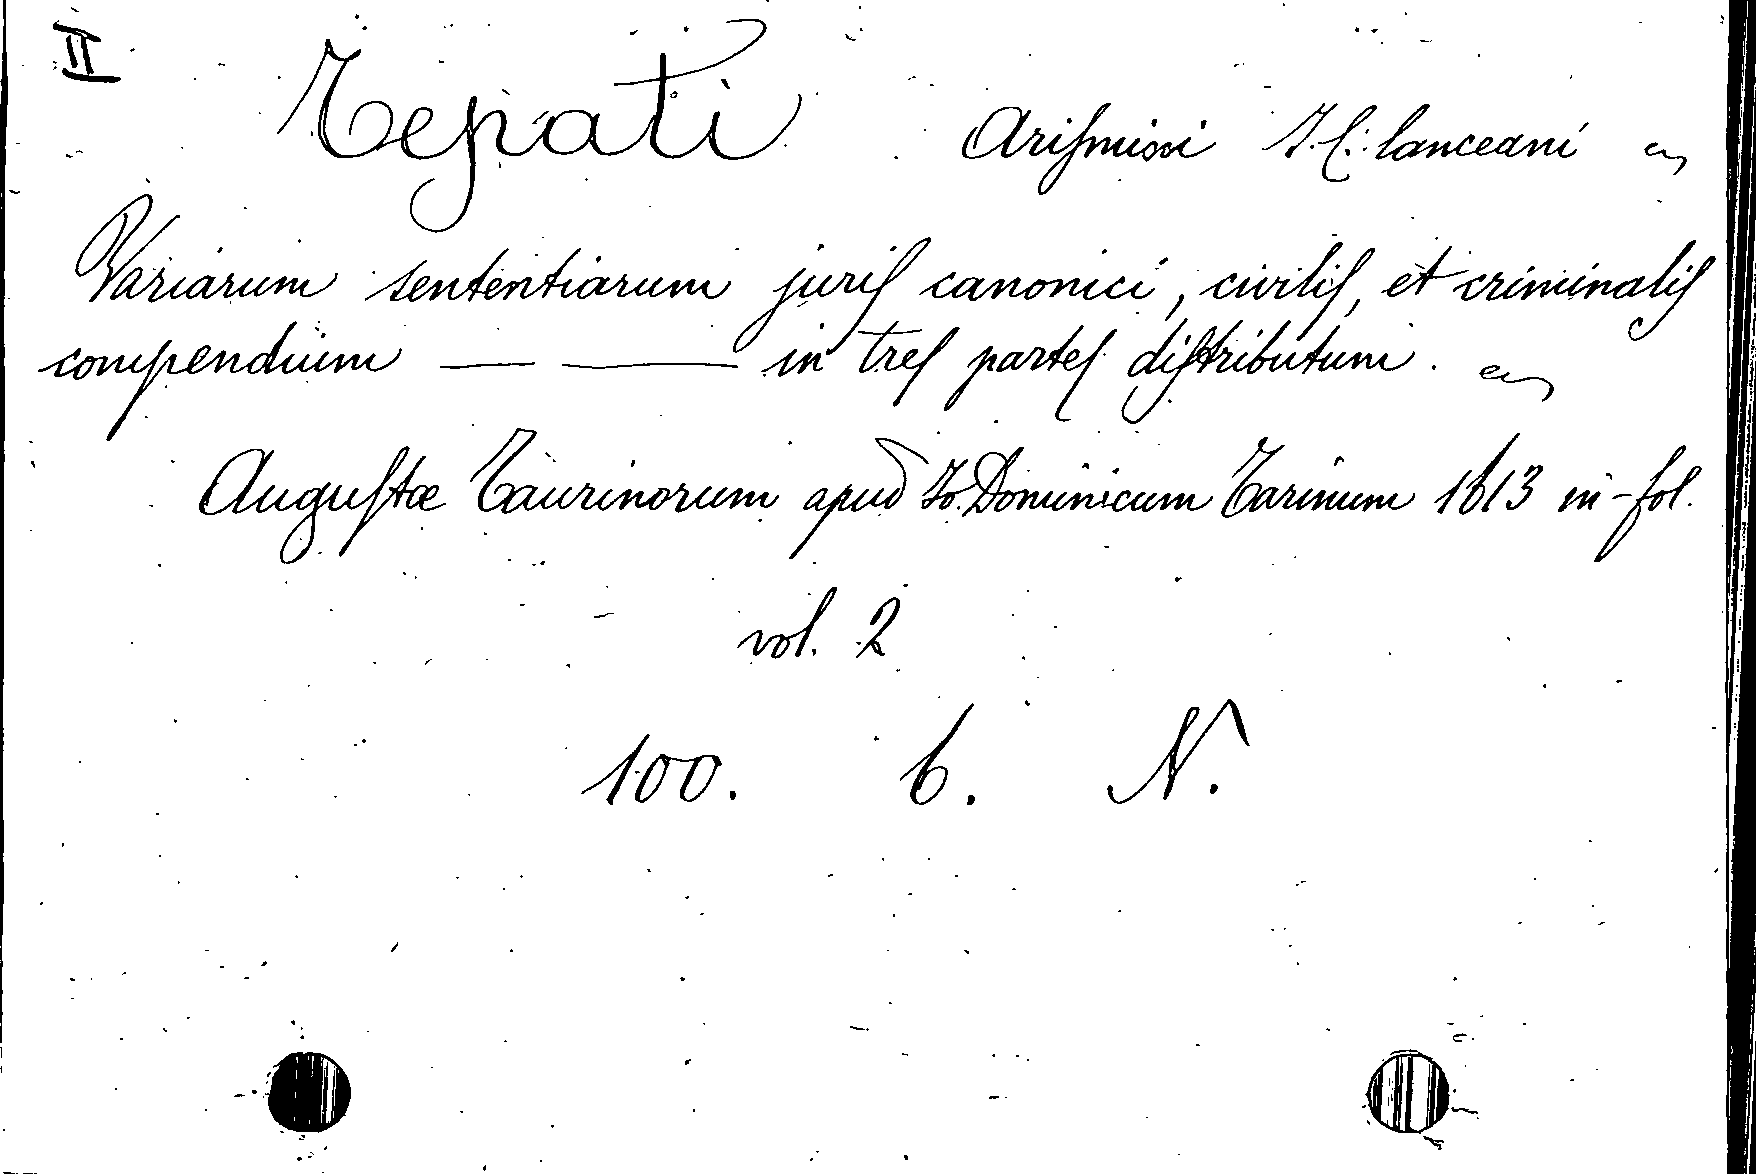 II
Tepati Arismini J. C. lanceani
Variarum sententiarum juris canonici, civilis, et criminalis
compendium — — in tres partes distributum.
Augustæ Taurinorum apud Io. Dominicum Tarinum 1613 in-fol.
vol. 2
100. 6. N.